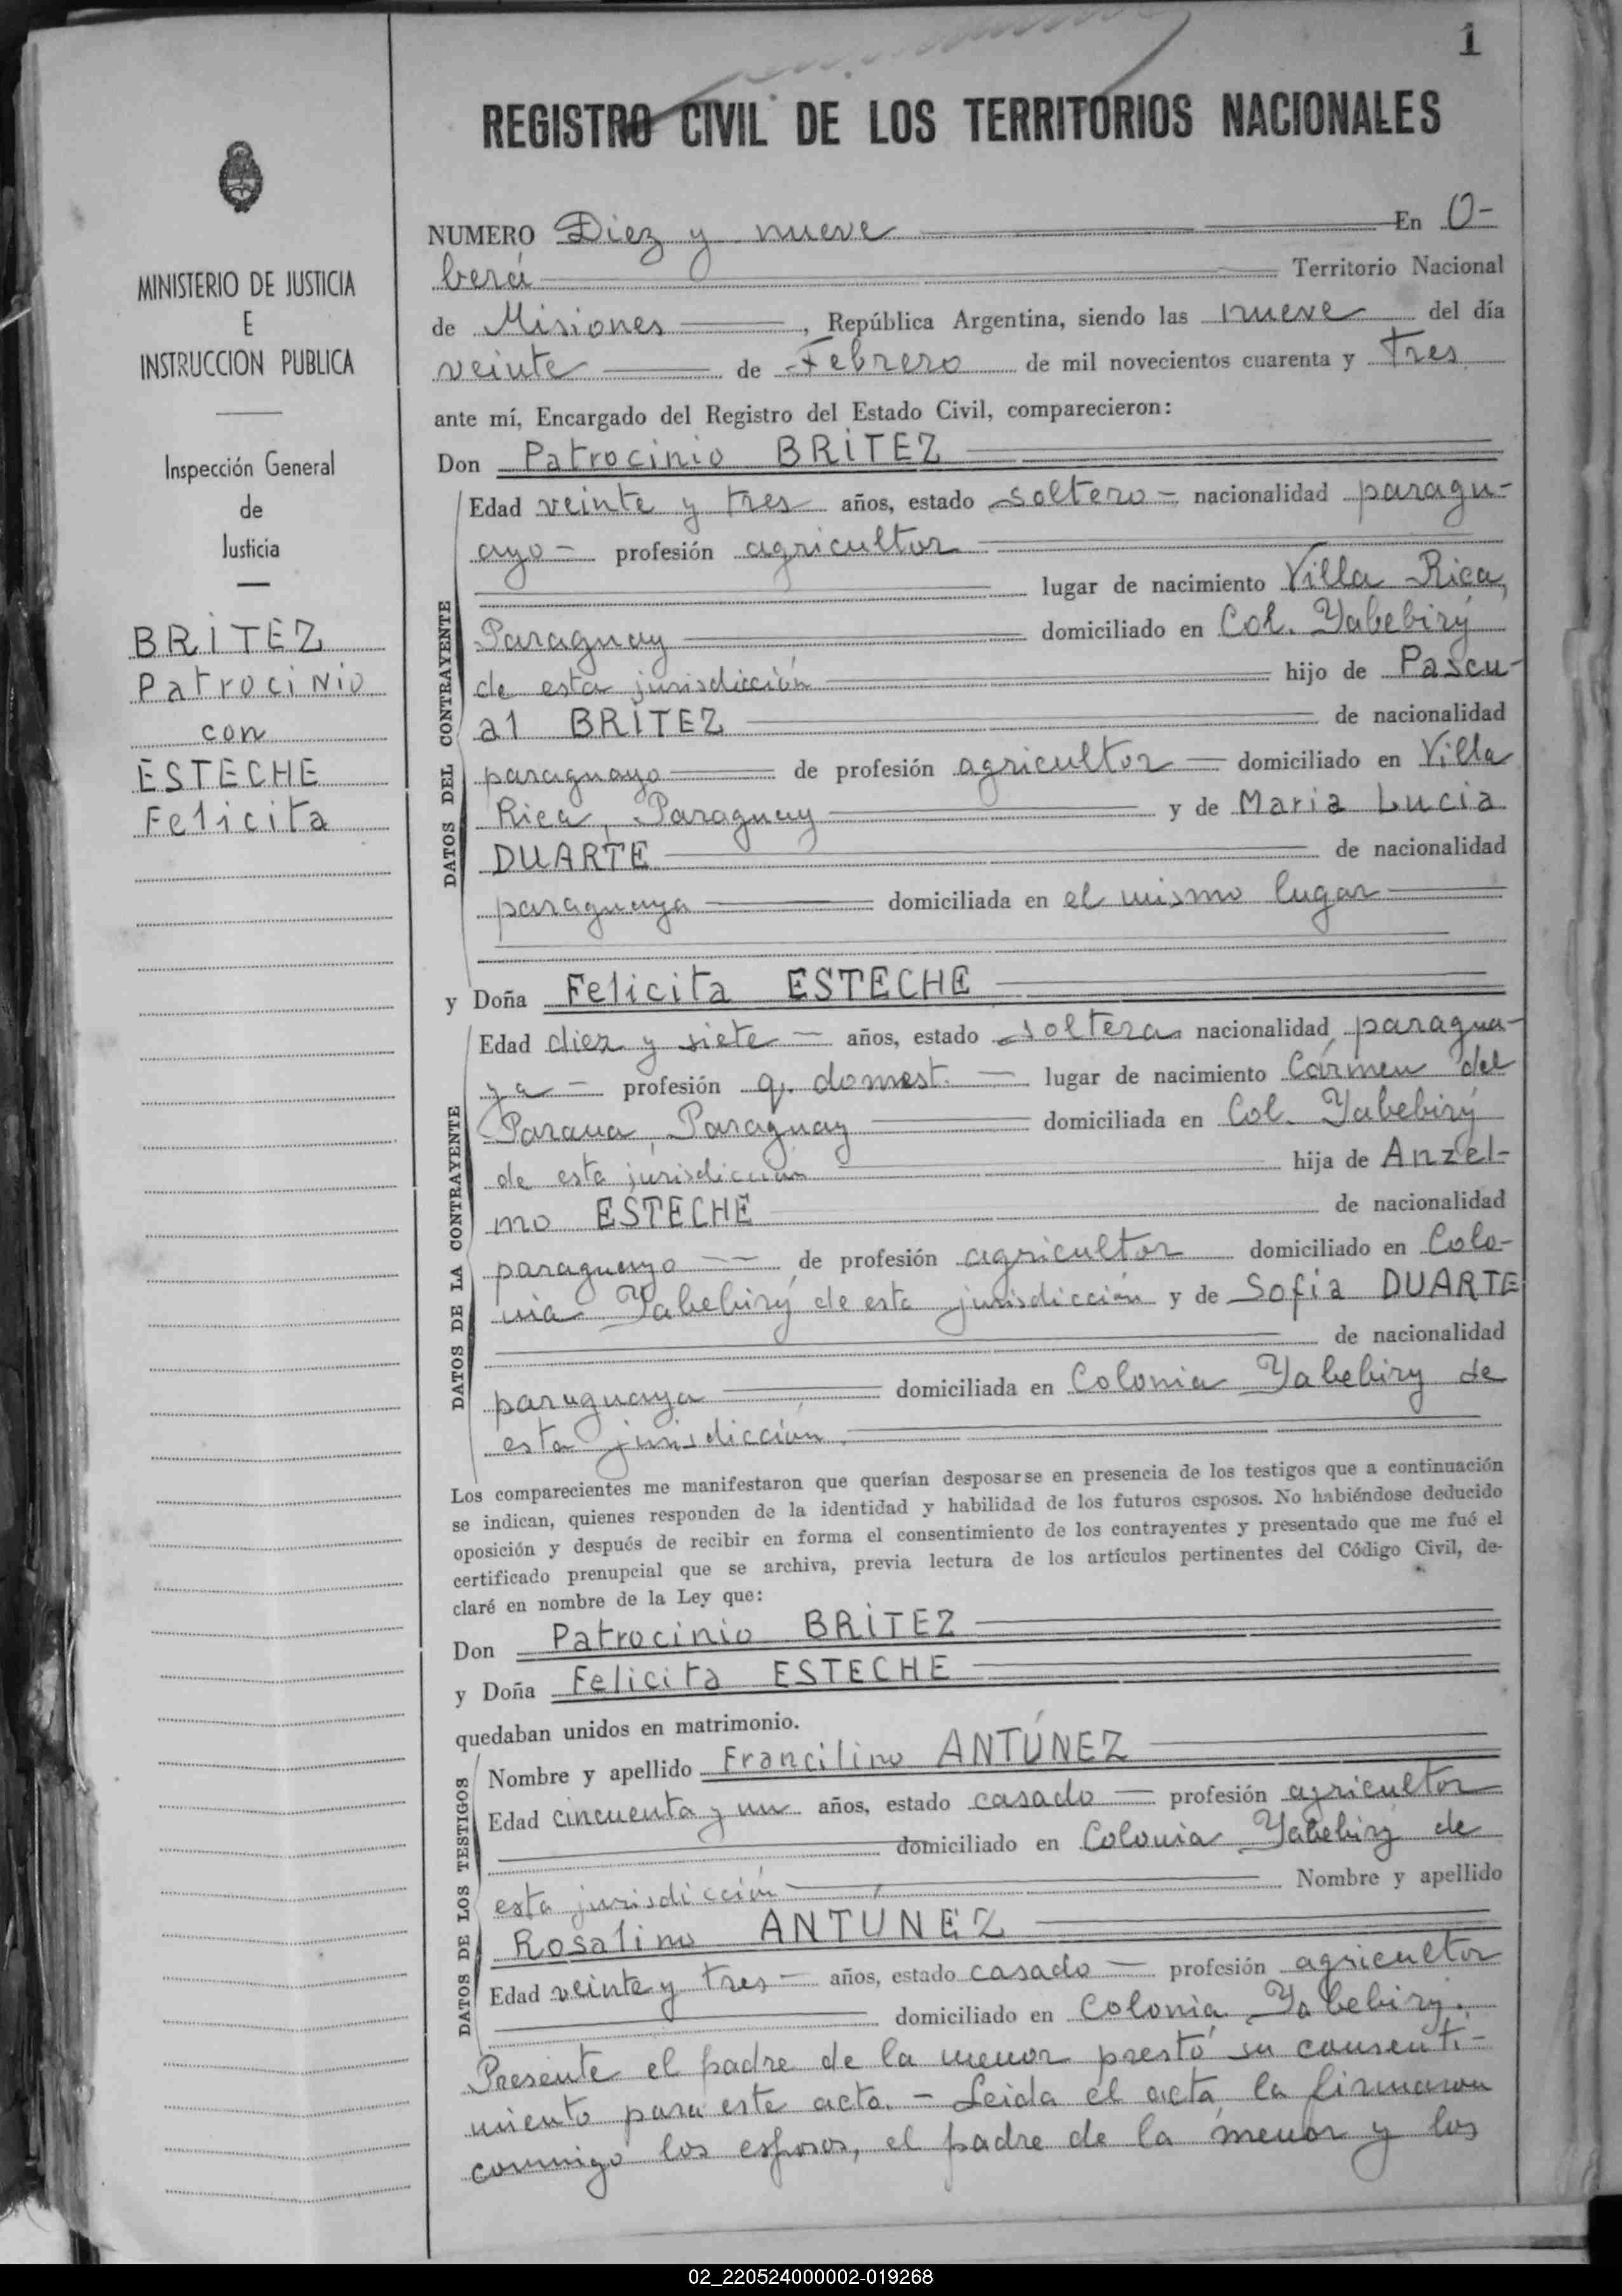 1
REGISTRO CIVIL DE LOS TERRITORIOS NACIONALES
MINISTERIO DE JUSTICIA
E
INSTRUCCION PUBLICA
Inspección General
de
Justicia
BRÍTEZ
Patrocinio
con
ESTECHE
Felicita
NUMERO Diez y nueve En O-
berá Territorio Nacional
de Misiones, República Argentina, siendo las nueve del día
veinte de Febrero de mil novecientos cuarenta y tres
ante mí, Encargado del Registro del Estado Civil, comparecieron:
Don Patrocinio BRÍTEZ
DATOS DEL CONTRAYENTE
Edad veinte y tres años, estado soltero - nacionalidad paragu-
ayo - profesión agricultor
lugar de nacimiento Villa Rica,
Paraguay domiciliado en Col. Yabebirý
de esta jurisdicción hijo de Pascu-
al BRÍTEZ de nacionalidad
paraguayo de profesión agricultor domiciliado en Villa
Rica, Paraguay y de Maria Lucia
DUARTE de nacionalidad
paraguaya domiciliada en el mismo lugar
y Doña Felicita ESTECHE
DATOS DE LA CONTRAYENTE
Edad diez y siete - años, estado soltera nacionalidad paragua-
ya - profesión q. domest. - lugar de nacimiento Cármen del
Parana, Paraguay domiciliada en Col. Yabebirý
de esta jurisdicción hija de Anzel-
mo ESTECHE de nacionalidad
paraguayo de profesión agricultor domiciliado en Colo-
nia Yabebirý de esta jurisdicción y de Sofia DUARTE
de nacionalidad
paraguaya domiciliada en Colonia Yabebiry de
esta jurisdicción.
Los comparecientes me manifestaron que querían desposarse en presencia de los testigos que a continuación
se indican, quienes responden de la identidad y habilidad de los futuros esposos. No habiéndose deducido
oposición y después de recibir en forma el consentimiento de los contrayentes y presentado que me fué el
certificado prenupcial que se archiva, previa lectura de los artículos pertinentes del Código Civil, de-
claré en nombre de la Ley que:
Don Patrocinio BRÍTEZ
y Doña Felicita ESTECHE
quedaban unidos en matrimonio.
DATOS DE LOS TESTIGOS
Nombre y apellido Francilino ANTÚNEZ
Edad cincuenta y un años, estado casado - profesión agricultor
domiciliado en Colonia Yabebiry de
esta jurisdicción Nombre y apellido
Rosalino ANTÚNEZ
Edad veinte y tres - años, estado casado - profesión agricultor
domiciliado en Colonia Yabebiry.
Presente el padre de la menor prestó su consenti-
miento para este acto. - Leida el acta, la firmaron
conmigo los esposos, el padre de la menor y los
02_220524000002-019268